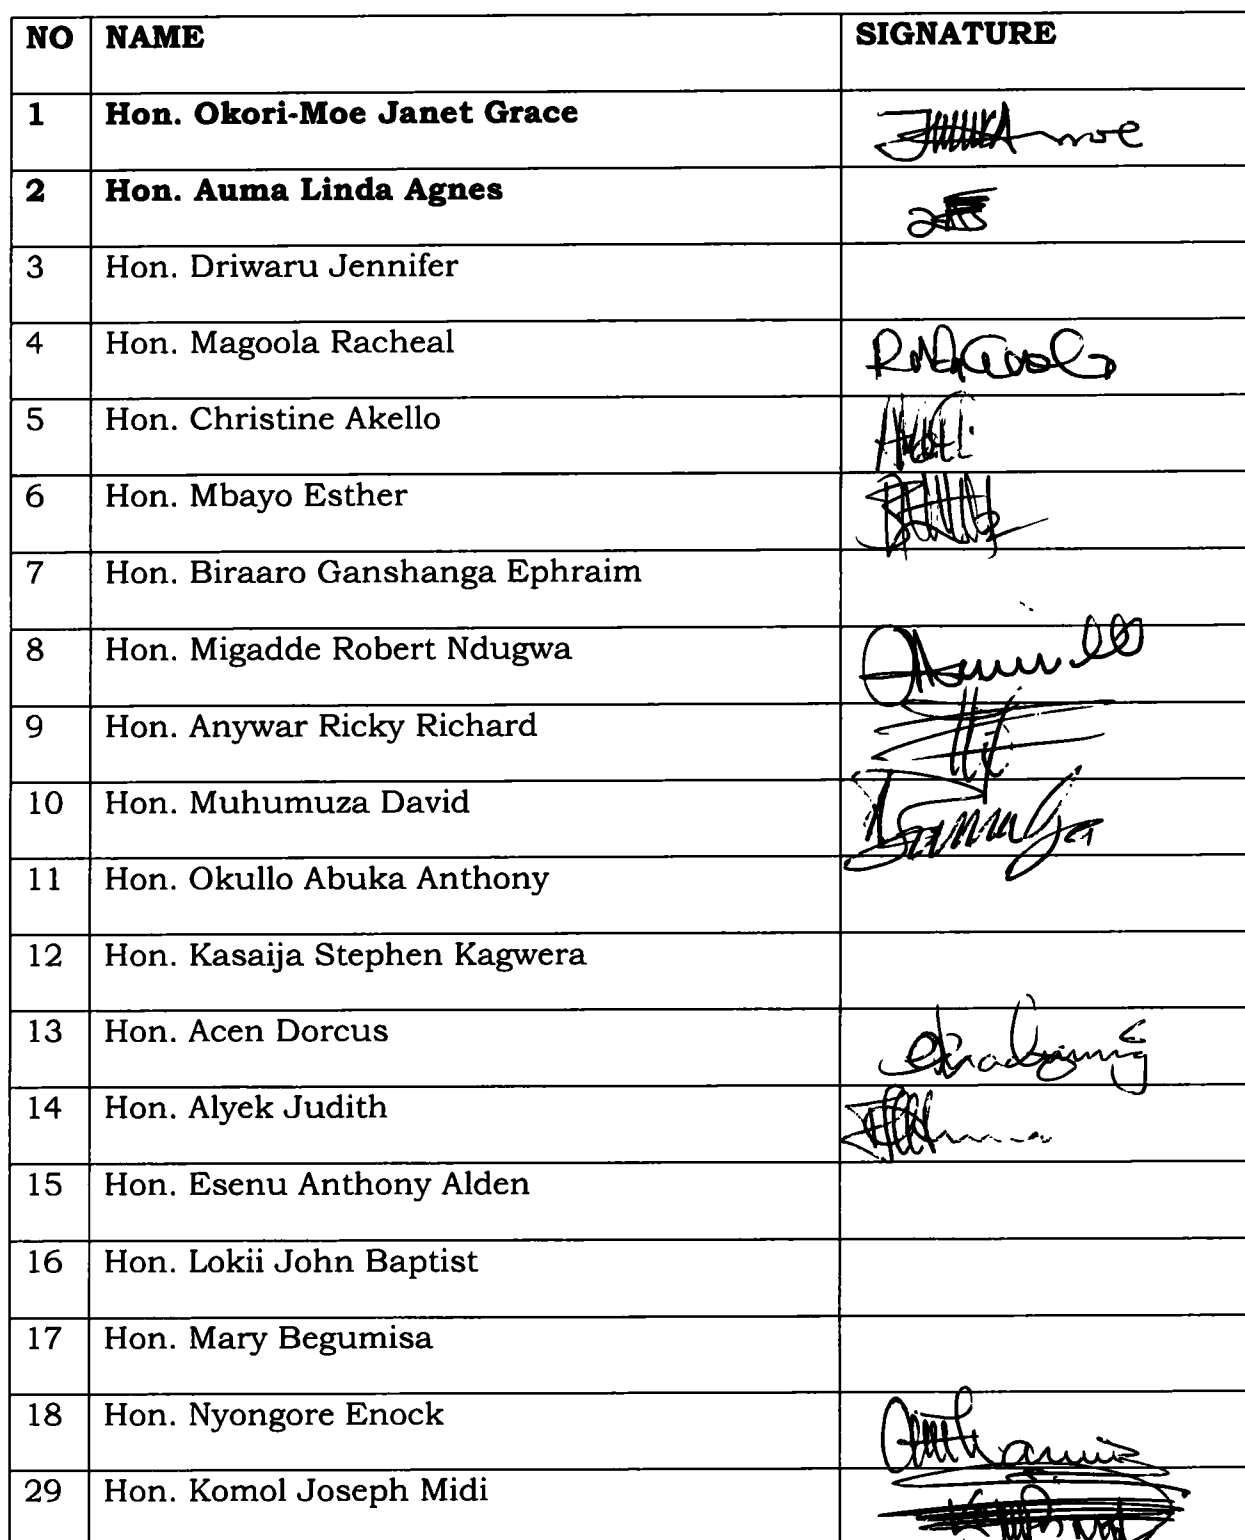 NO NAME SIGNATURE
1 Hon. Okori-Moe Janet Grace
2 Hon. Auma Linda Agnes
3 Hon. Driwaru Jennifer
4 Hon. Magoola Racheal
5 Hon. Christine Akello
6 Hon. Mbayo Esther
7 Hon. Biraaro Ganshanga Ephraim
8 Hon. Migadde Robert Ndugwa
9 Hon. Anywar Ricky Richard
10 Hon. Muhumuza David
11 Hon. Okullo Abuka Anthony
12 Hon. Kasaija Stephen Kagwera
13 Hon. Acen Dorcus
14 Hon. Alyek Judith
15 Hon. Esenu Anthony Alden
16 Hon. Lokii John Baptist
17 Hon. Mary Begumisa
18 Hon. Nyongore Enock
29 Hon. Komol Joseph Midi